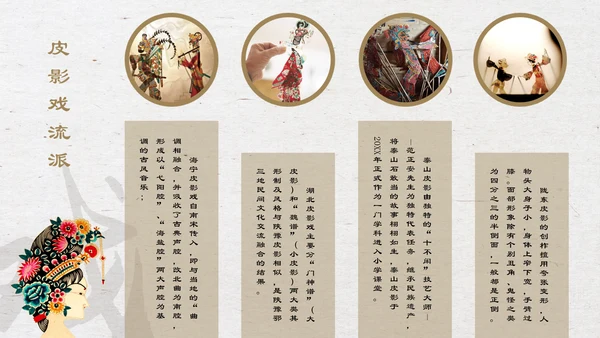 皮影戏流派
海宁皮影戏自南宋传入，即与当地的“曲
调相融合，并吸收了古典声腔，改北曲为南腔，
形成以“弋阳腔”、“海盐腔”两大声腔为基
调的古风音乐；
湖北皮影戏主要分“门神谱”（大
皮影）和“魏谱”（小皮影）两大类其
形制及风格与陕豫皮影相似，是陕豫鄂
三地民间文化交流融合的结果。
泰山皮影由独特的“十不闲”技艺大师—
—范正安先生为独特代表任务，继承民族遗产，
将泰山石敢当的故事栩栩如生，泰山皮影于
20XX年正式作为一门学科进入小学课堂。
陇东皮影的创作擅用夸张变形，人
物头大身子小，身体上窄下宽，手臂过
膝。面部形象除有个别丑角、鬼怪之类
为四分之三的半侧面，一般都是正侧。